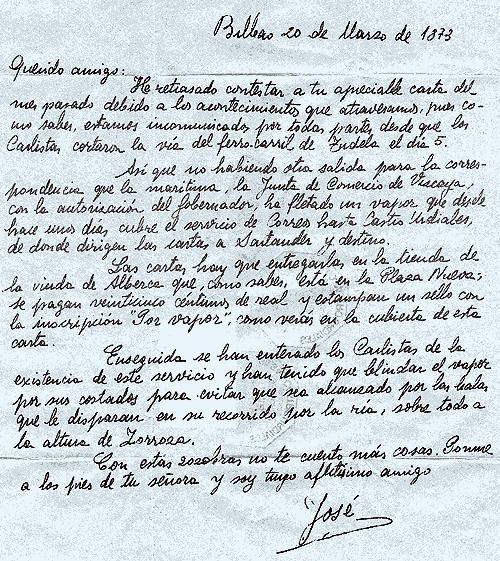 Bilbao 20 de Marzo de 1873
Querido amigo:
He retrasado contestar a tu apreciable carta del
mes pasado debido a los acontecimientos que atravesamos, pues co-
mo sabes, estamos incomunicados por todas partes, desde que los
Carlistas cortaron la vía del ferro-carril de Tudela el día 5.
Así que no habiendo otra salida para la corres-
pondencia que la marítima, la Junta de Comercio de Vizcaya,
con la autorización del Gobernador, ha fletado un vapor que desde
hace unos días, cubre el servicio de Correos hasta Castro Urdiales,
de donde dirigen las cartas a Santander y destino.
Las cartas hay que entregarlas en la tienda de
la viuda de Alberca que, como sabes, está en la Plaza Nueva;
se pagan veinticinco centimos de real y estampan un sello con
la inscripción "Por vapor", como verás en la cubierta de esta
carta.
Enseguida se han enterado los Carlistas de la
existencia de este servicio y han tenido que blindar el vapor
por sus costados para evitar que sea alcanzado por las balas
que le disparan en su recorrido por la ría, sobre todo a
la altura de Zorroza.
Con estas zozobras no te cuento más cosas. Ponme
a los pies de tu señora y soy tuyo afltísimo amigo
José